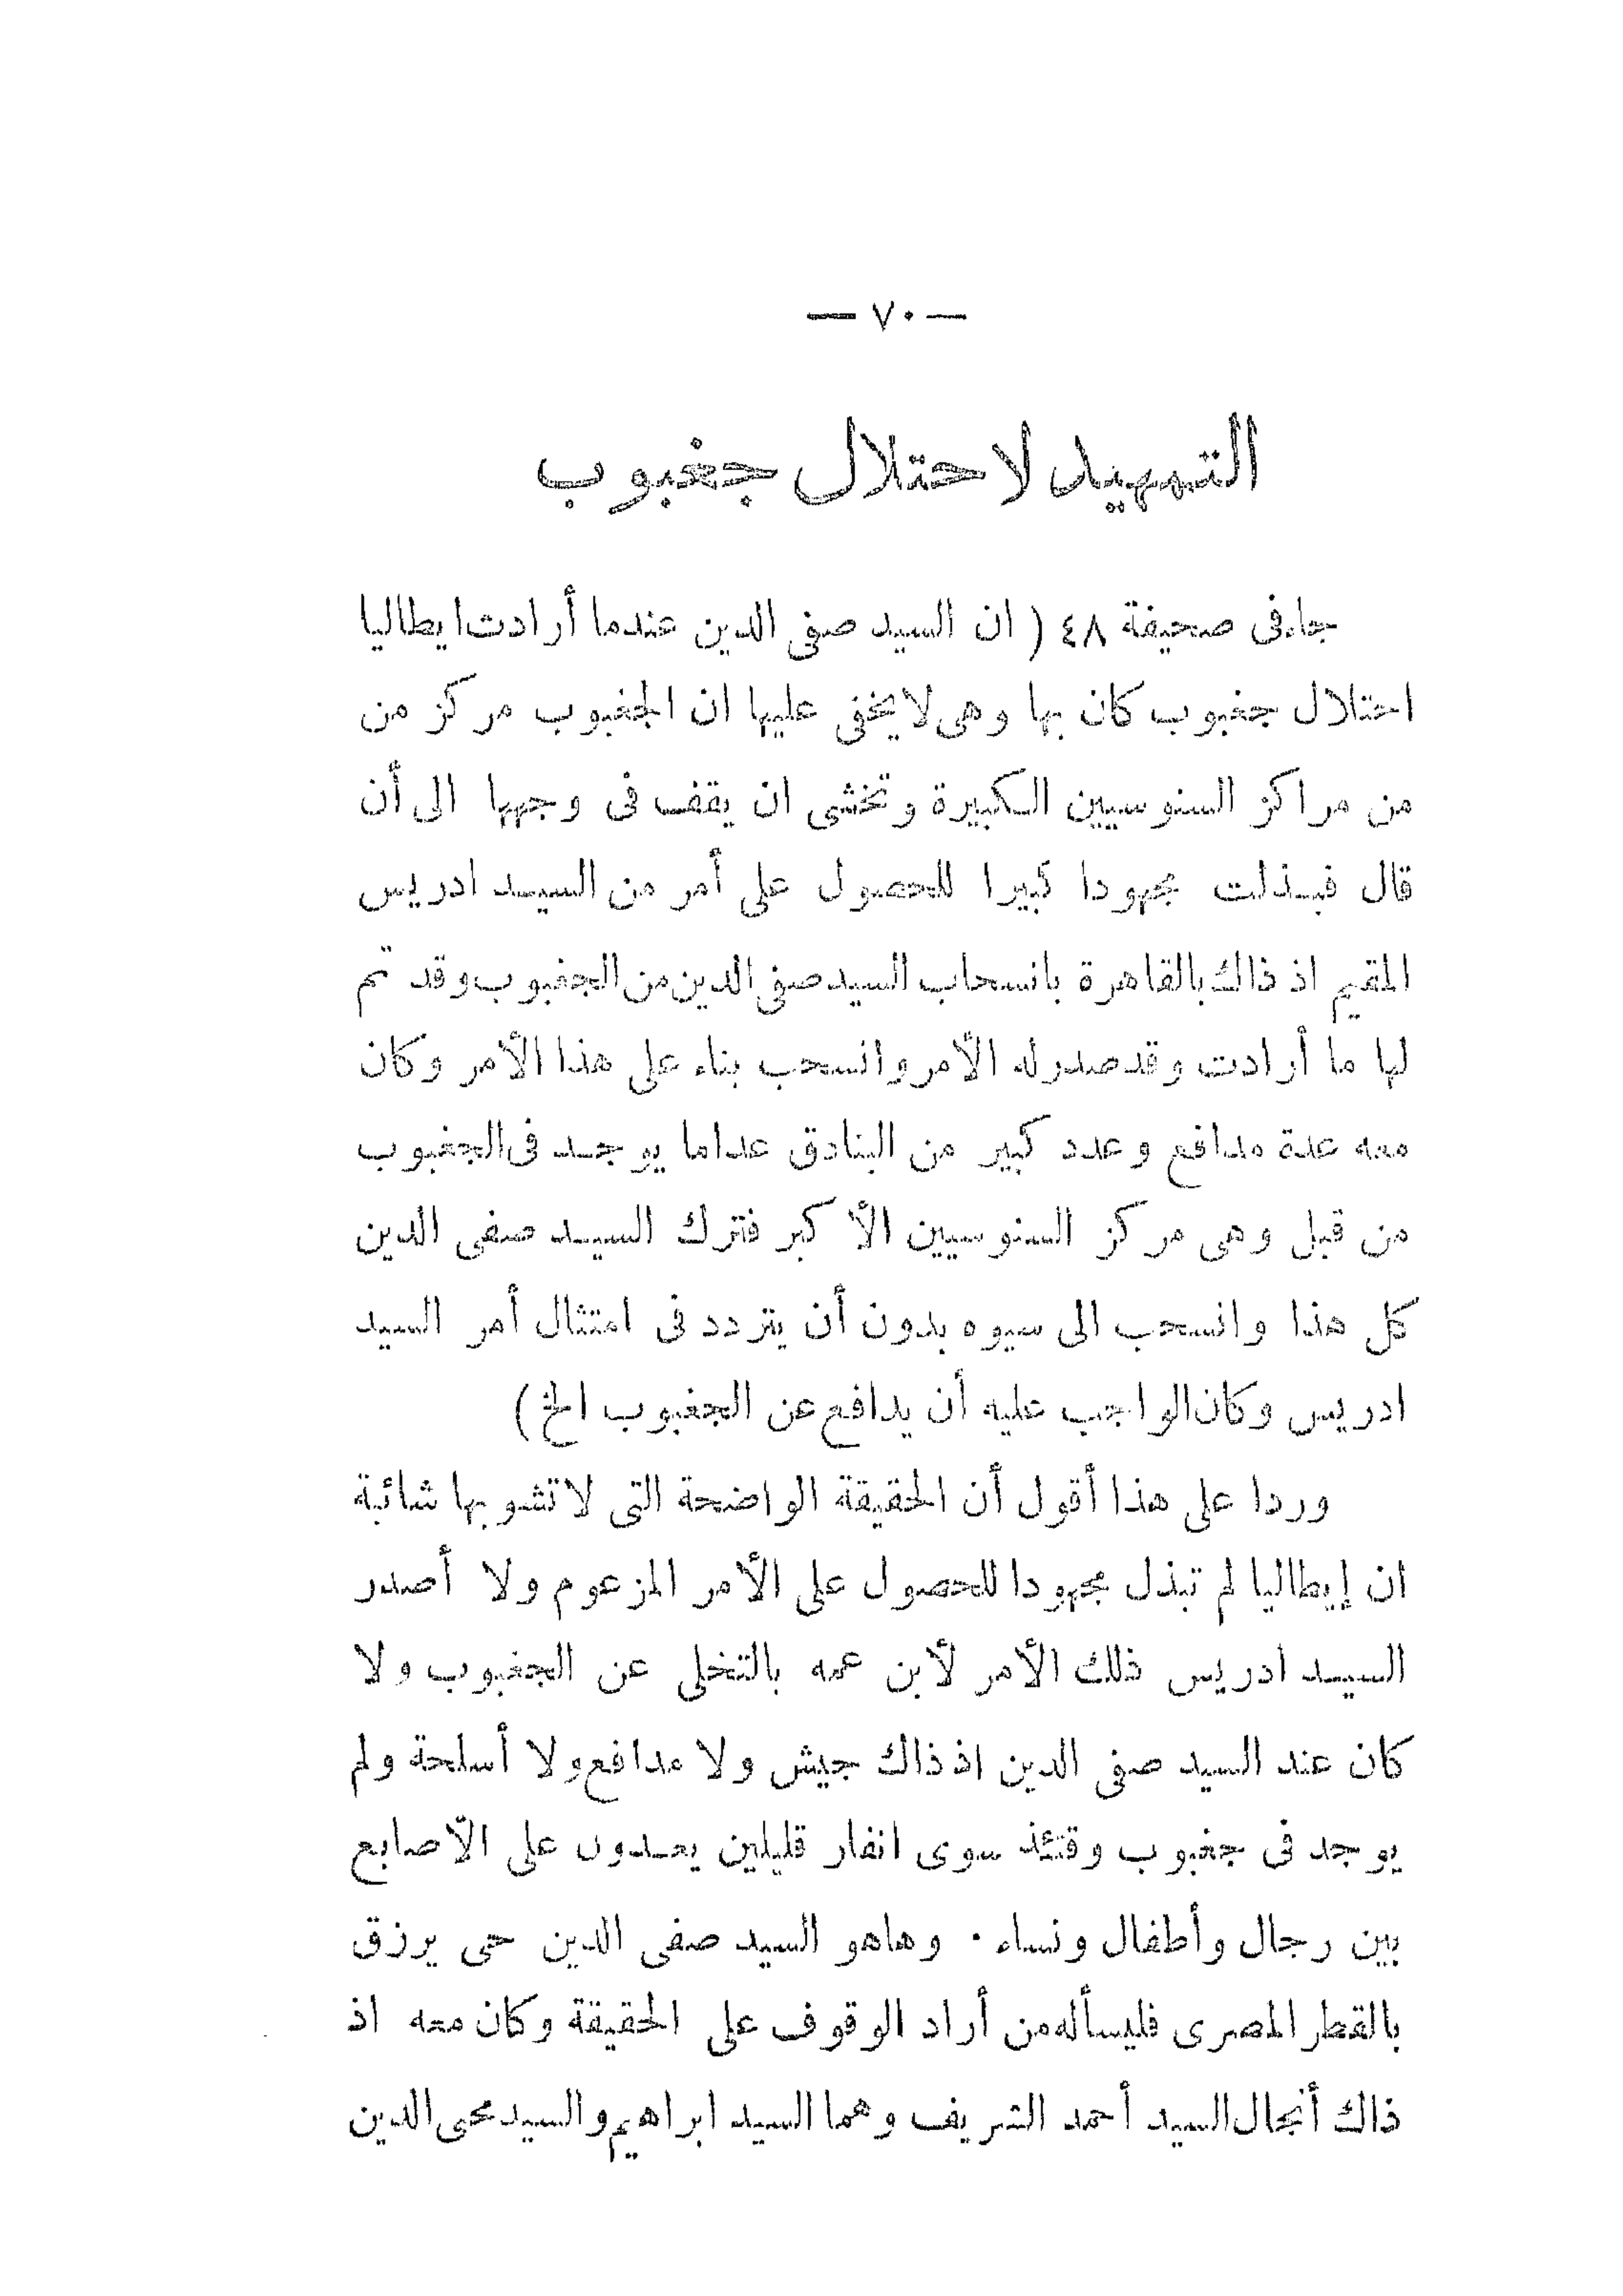 — ٧٠ —
التمهيد لاحتلال جغبوب
جاء فى صحيفة ٤٨ ( ان السيد صفى الدين عندما أرادت ايطاليا
احتلال جغبوب كان بها وهى لا يخفى عليها ان الجغبوب مركز من
من مراكز السنوسيين الكبيرة وتخشى ان يقف فى وجهها الى أن
قال فبذلت مجهودا كبيرا للحصول على أمر من السيد ادريس
المقيم اذ ذاك بالقاهرة بانسحاب السيد صفى الدين من الجغبوب وقد تم
لها ما أرادت وقد صدر له الأمر وانسحب بناء على هذا الأمر وكان
معه عدة مدافع وعدد كبير من البنادق عدا ما يوجد فى الجغبوب
من قبل وهى مركز السنوسيين الأكبر فترك السيد صفى الدين
كل هذا وانسحب الى سيوه بدون أن يتردد فى امتثال أمر السيد
ادريس وكان الواجب عليه أن يدافع عن الجغبوب الخ )
وردا على هذا أقول أن الحقيقة الواضحة التى لا تشوبها شائبة
ان إيطاليا لم تبذل مجهودا للحصول على الأمر المزعوم ولا أصدر
السيد ادريس ذلك الأمر لأبن عمه بالتخلى عن الجغبوب ولا
كان عند السيد صفى الدين اذ ذاك جيش ولا مدافع ولا أسلحة ولم
يوجد فى جغبوب وقتئذ سوى انفار قليلين يعدون على الأصابع
بين رجال وأطفال ونساء . وهاهو السيد صفى الدين حى يرزق
بالقطر المصرى فليسأله من أراد الوقوف على الحقيقة وكان معه اذ
ذاك أنجال السيد أحمد الشريف وهما السيد ابراهيم والسيد محى الدين